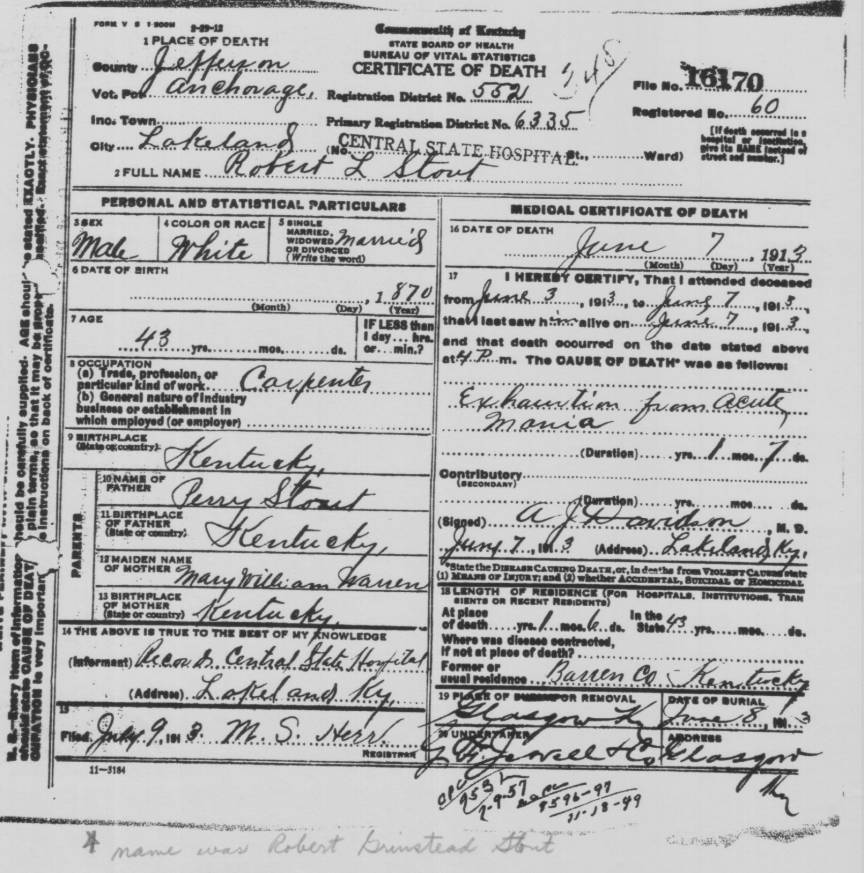 FORM V S 1-500M 2-29-12
Commonwealth of Kentucky
STATE BOARD OF HEALTH
BUREAU OF VITAL STATISTICS
CERTIFICATE OF DEATH
1 PLACE OF DEATH
County Jefferson
Vot. Pct Anchorage,
Inc. Town
City Lakeland
Registration District No. 552
Primary Registration District No. 6335
(No. CENTRAL STATE HOSPITAL St., Ward)
File No. 16170
Registered No. 60
[If death occurred in a
hospital or institution,
give its NAME instead of
street and number.]
2 FULL NAME Robert L Stout
PERSONAL AND STATISTICAL PARTICULARS
3 SEX
Male
4 COLOR OR RACE
White
5 SINGLE
MARRIED,
WIDOWED
OR DIVORCED
(Write the word)
Married
6 DATE OF BIRTH
, 1870
(Month) (Day) (Year)
7 AGE
43 yrs. mos. ds.
IF LESS than
1 day ... hrs.
or ... min.?
8 OCCUPATION
(a) Trade, profession, or
particular kind of work Carpenter
(b) General nature of industry
business or establishment in
which employed (or employer)
9 BIRTHPLACE
(State or country)
Kentucky,
PARENTS
10 NAME OF
FATHER
Perry Stout
11 BIRTHPLACE
OF FATHER
(State or country)
Kentucky,
12 MAIDEN NAME
OF MOTHER
Mary William Warren
13 BIRTHPLACE
OF MOTHER
(State or country)
Kentucky,
14 THE ABOVE IS TRUE TO THE BEST OF MY KNOWLEDGE
(Informant) Records Central State Hospital
(Address) Lakeland Ky,
15
Filed July 9, 1913. M. S. Herr.
REGISTRAR
11-3184
MEDICAL CERTIFICATE OF DEATH
16 DATE OF DEATH
June 7, 1913
(Month) (Day) (Year)
17 I HEREBY CERTIFY, That I attended deceased
from June 3, 1913, to June 7, 1913,
that I last saw him alive on June 7, 1913,
and that death occurred on the date stated above
at 4 P. m. The CAUSE OF DEATH* was as follows:
Exhaustion from Acute
Mania
(Duration) yrs. 1 mos. 7 ds.
Contributory
(SECONDARY)
(Duration) yrs. mos. ds.
(Signed) A J Davidson, M. D.
June 7, 1913 (Address) Lakeland Ky.
*State the DISEASE CAUSING DEATH, or, in deaths from VIOLENT CAUSES state
(1) MEANS OF INJURY; and (2) whether ACCIDENTAL, SUICIDAL or HOMICIDAL
18 LENGTH OF RESIDENCE (FOR HOSPITALS, INSTITUTIONS, TRAN
SIENTS OR RECENT RESIDENTS)
At place
of death yrs. 1 mos. 6 ds.
In the
State 43 yrs. mos. ds.
Where was disease contracted,
if not at place of death?
Former or
usual residence Barren Co Kentucky
19 PLACE OF BURIAL OR REMOVAL
Glasgow Ky
DATE OF BURIAL
June 8, 1913
20 UNDERTAKER
Jewell & Co
ADDRESS
Glasgow
Ky
7-9-57
8596-97
11-18-49
name was Robert Grinstead Stout